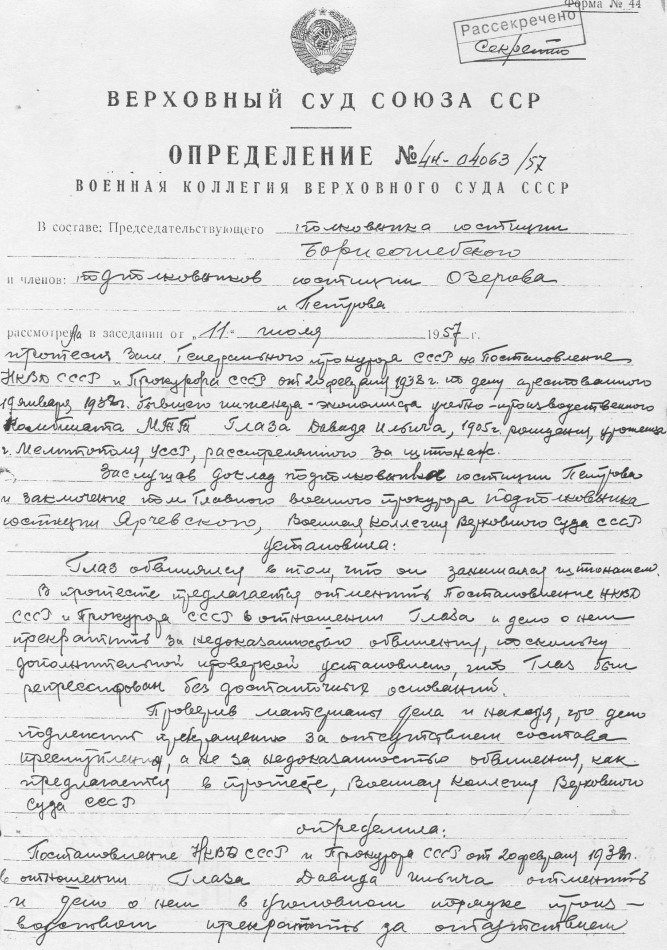 Форма № 44
Рассекречено
Секретно
ВЕРХОВНЫЙ СУД СОЮЗА ССР
ОПРЕДЕЛЕНИЕ №4н-04063/57
ВОЕННАЯ КОЛЛЕГИЯ ВЕРХОВНОГО СУДА СССР
В составе: Председательствующего полковника юстиции
Борисоглебского
и членов: подполковников юстиции Озерова
и Петрова
рассмотрела в заседании от "11" июля 1957 г.
протест Зам. Генерального прокурора СССР на Постановление
НКВД СССР и Прокурора СССР от 20 февраля 1938 г. по делу арестованного
19 января 1938 г. бывшего инженера-экономиста учебно-производственного
комбината Глаза Давида Ильича, 1905 г. рождения, уроженца
г. Мелитополя УССР, расстрелянного за шпионаж.
Заслушав доклад подполковника юстиции Петрова
и заключение пом. Главного военного прокурора подполковника
юстиции Ярчевского, Военная Коллегия Верховного Суда СССР
установила:
Глаз обвинялся в том, что он занимался шпионажем.
В протесте предлагается отменить Постановление НКВД
СССР и Прокурора СССР в отношении Глаза и дело о нем
прекратить за недоказанностью обвинения, поскольку
дополнительной проверкой установлено, что Глаз был
репрессирован без достаточных оснований.
Проверив материалы дела и находя, что дело
подлежит прекращению за отсутствием состава
преступления, а не за недоказанностью обвинения, как
предлагается в протесте, Военная Коллегия Верховного
Суда СССР
определила:
Постановление НКВД СССР и Прокурора СССР от 20 февраля 1938 г.
в отношении Глаза Давида Ильича отменить
и дело о нем в уголовном порядке произ-
водством прекратить за отсутствием